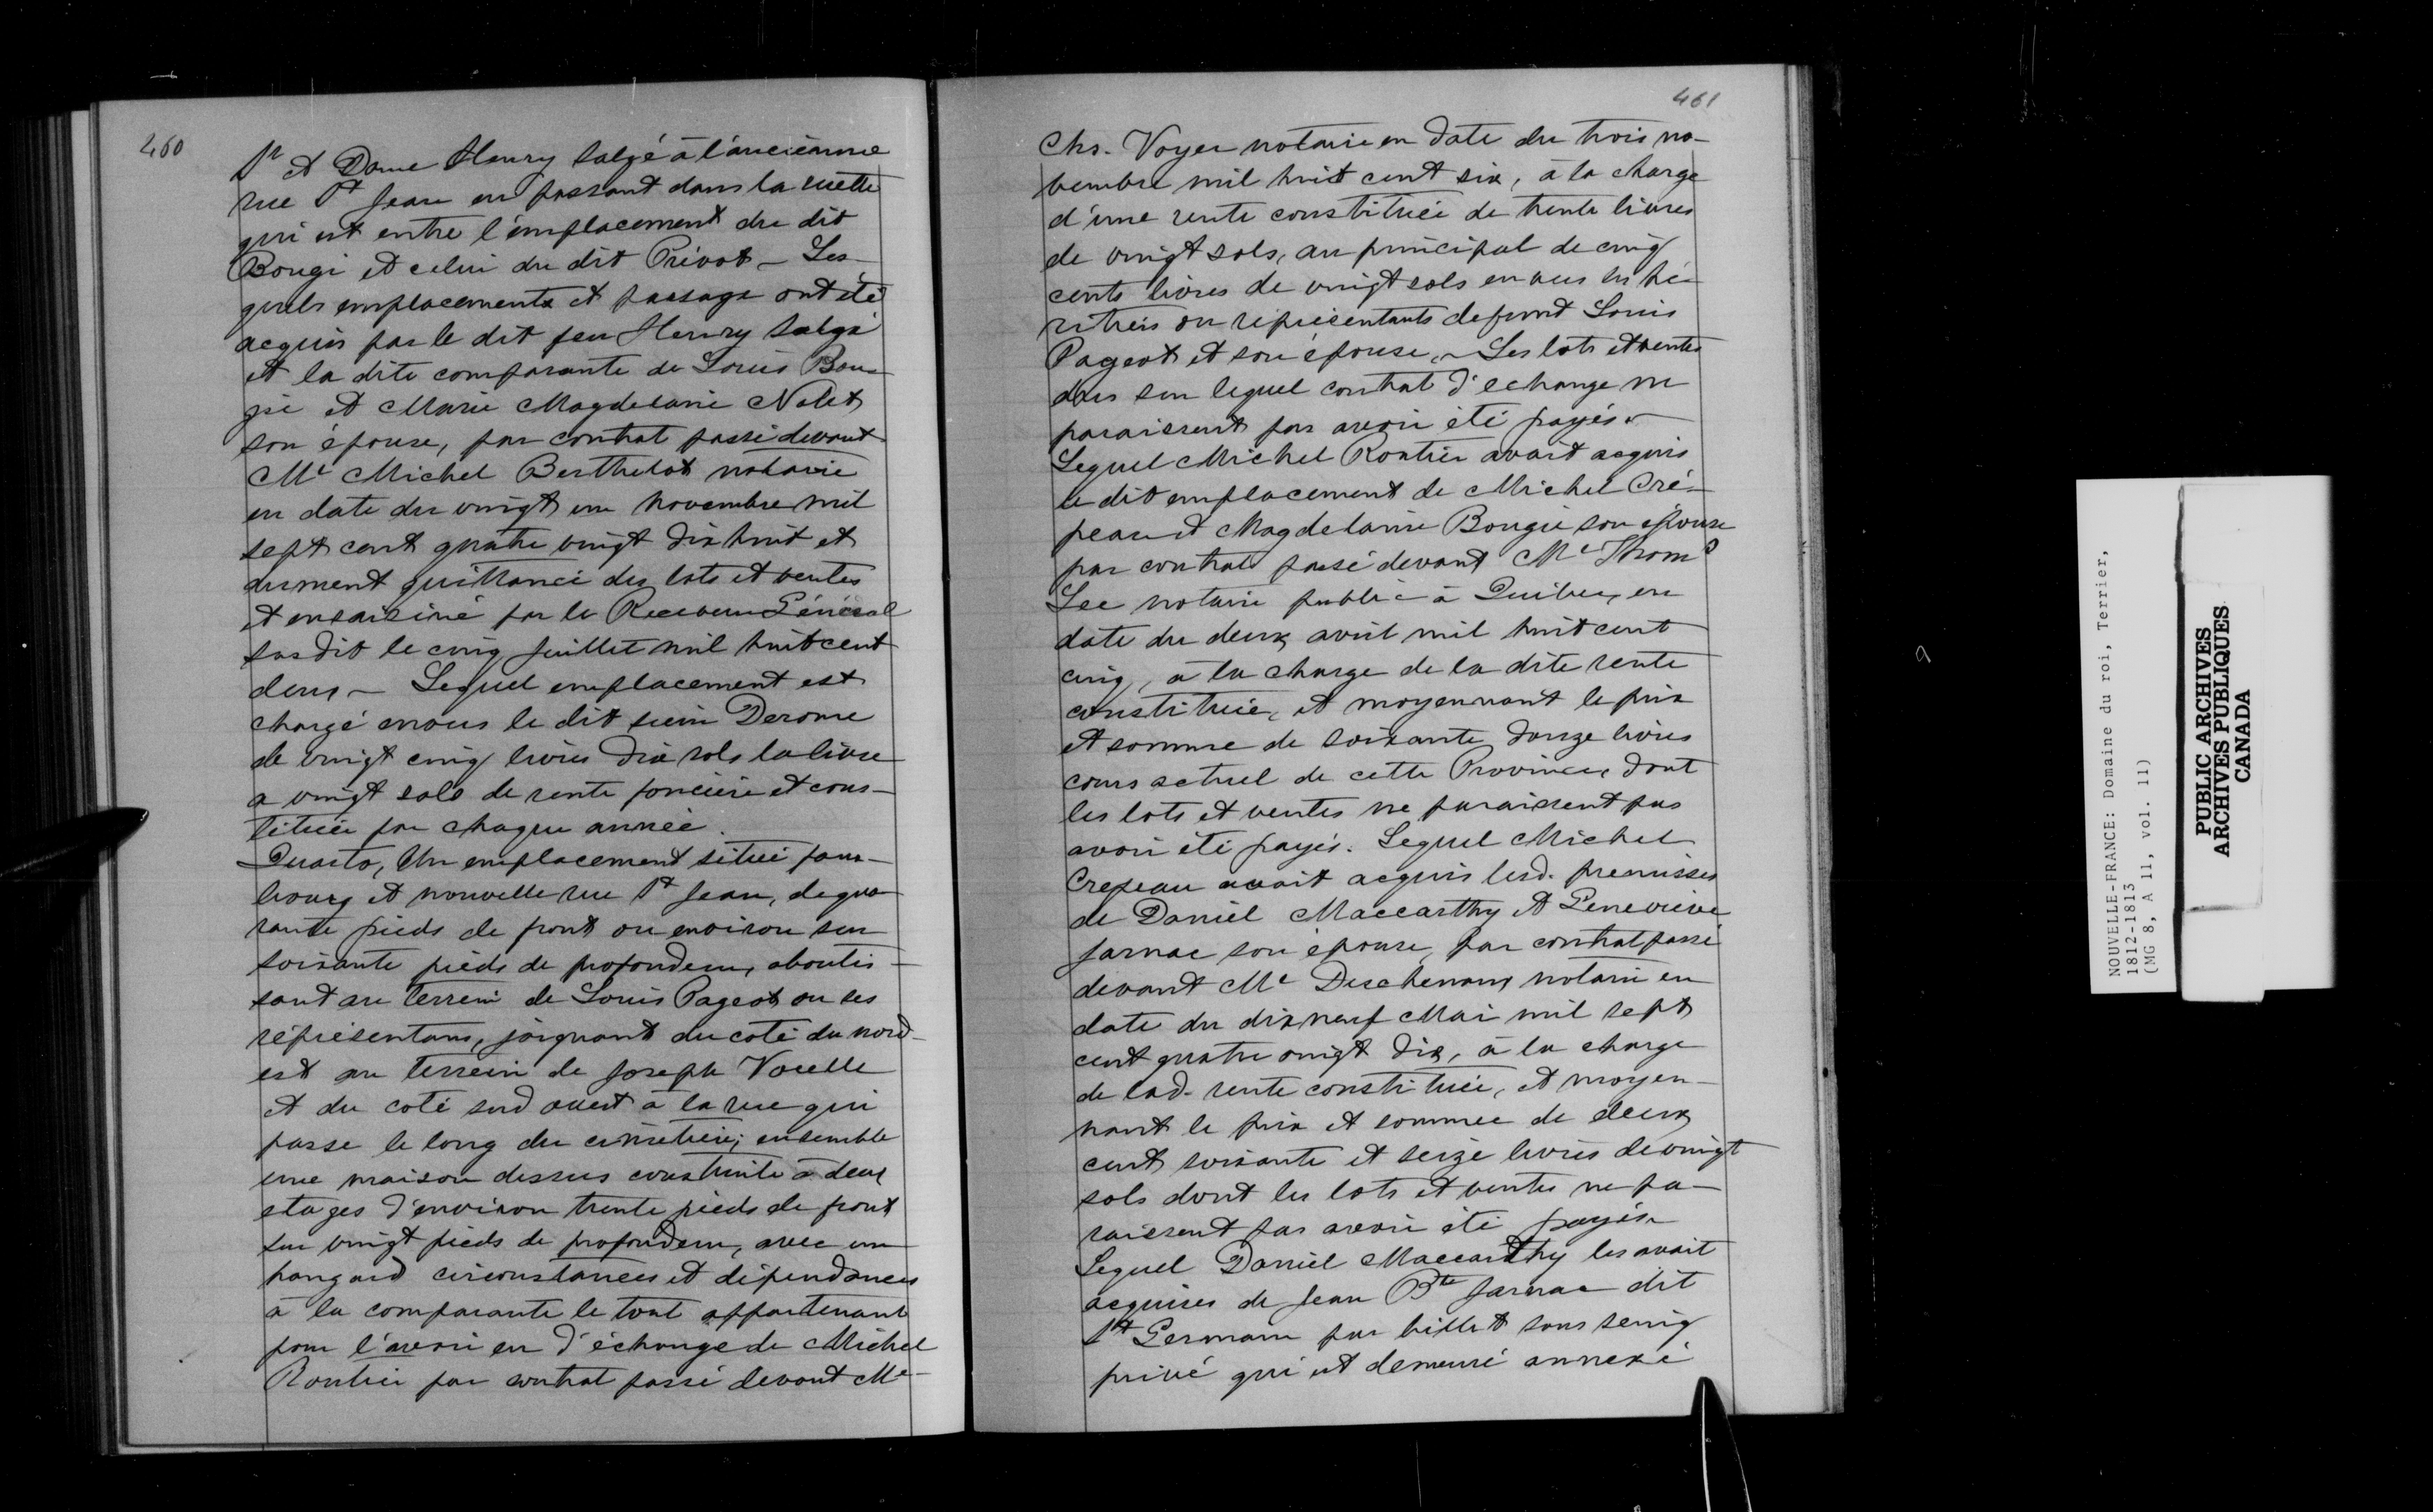 460
Sr et Dame Henry Salgé à l'ancienne
rue St Jean en passant dans la ruette
qui est entre l'emplacement du dit
Bougi et celui du dit Prévot – Les-
quels emplacements et passage ont été
acquis par le dit feu Henry Salgé
et la dite comparante de Louis Bou-
gie et Marie Magdelaine Nolet
son épouse, par contrat passé devant
Me Michel Berthelot notaire
en date du vingt un novembre mil
sept cent quatre vingt dix huit et
dument quittancé des lots et ventes
et ensaisiné par le Receveur Général
susdit le cinq Juillet mil huit cent
deux – Lequel emplacement est
chargé envers le dit sieur Derome
de vingt cinq livres dix sols la livre
a vingt sols de rente foncière et cons-
tituée par chaque année.
Quarto, Un emplacement situé faux-
bourg et nouvelle rue St Jean, de qua
rante pieds de front ou environ sur
soixante pieds de profondeur, aboutis-
sant au terrein de Louis Pageot ou ses
représentans, joignant du coté du nord-
est au terrein de Joseph Voielle
et du coté sud ouest à la rue qui
passe le long du cimetière; ensemble
une maison dessus construite à deux
etages d'environ trente pieds de front
sur vingt pieds de profondeur, avec un
hangard circonstances et dépendances
à la comparante le tout appartenant
pour l'avoir eu d'échange de Michel
Routier par contrat passé devant Me
461
Chs. Voyer notaire en date du trois no-
vembre mil huit cent six, à la charge
d'une rente constituée de trente livres
de vingt sols, au principal de cinq
cents livres de vingt sols envers les hé-
ritiers ou représentants defunt Louis
Pageot et son épouse, – Les lots et ventes
dus sur lequel contrat d'echange ne
paraissent pas avoir été payés.
Lequel Michel Routier avait acquis
le dit emplacement de Michel Cré-
peau et Magdelaine Bougie son épouse
par contrat passé devant Me Thoms
Lee notaire public à Québec, en
date du deux avril mil huit cent
cinq, à la charge de la dite rente
constituée, et moyennant le prix
et somme de soixante douze livres
cours actuel de cette Province, dont
les lots et ventes ne paraissent pas
avoir été payés. Lequel Michel
Crepeau avait acquis lesd. premisses
de Daniel Maccarthy et Genevieve
Jarnac son épouse, par contrat passé
devant Me Deschenaux notaire en
date du dix neuf Mai mil sept
cent quatre vingt dix, à la charge
de lad. rente constituée, et moyen-
nant le prix et sommee de deux
cent soixante et seize livres de vingt
sols dont les lots et ventes ne pa-
raissent pas avoir été payés.
Lequel Daniel Maccarthy les avait
acquises de Jean Bte Jarnac dit
St Germain par billet sous seing
privé qui est demeuré annexé
NOUVELLE-FRANCE: Domaine du roi, Terrier,
1812-1813
(MG 8, A 11, vol. 11)
PUBLIC ARCHIVES
ARCHIVES PUBLIQUES
CANADA